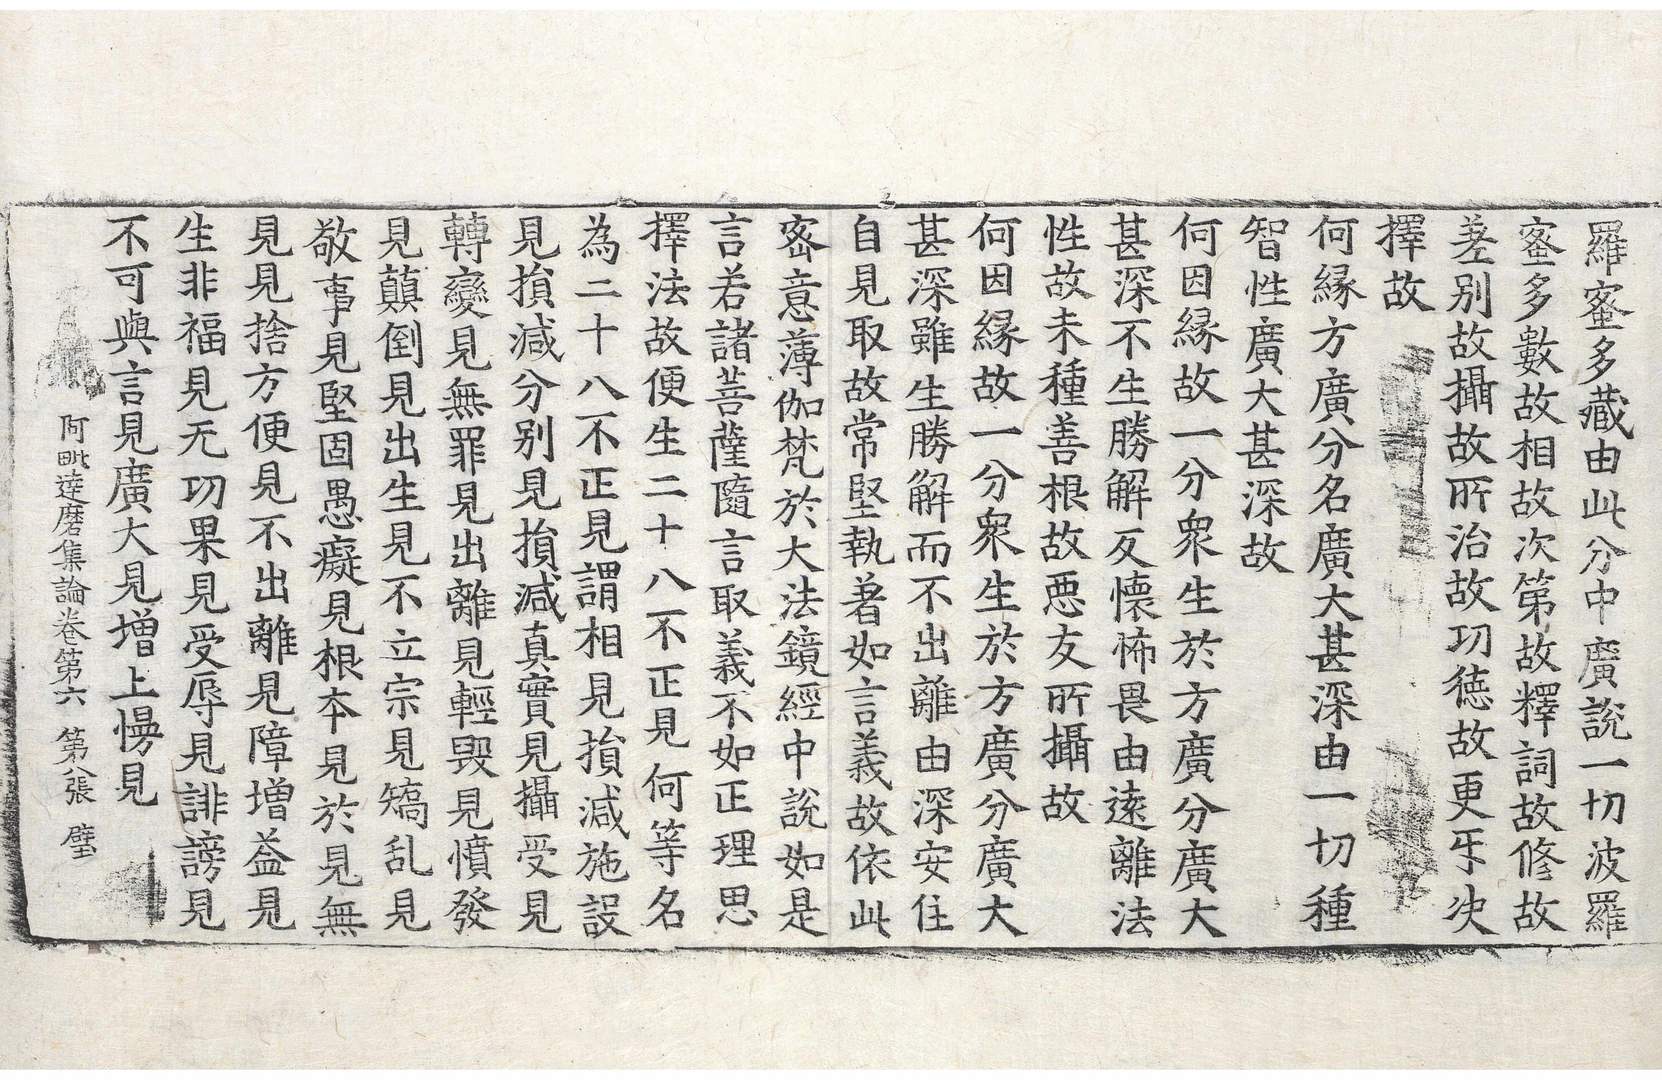 羅蜜多藏由此分中廣說一切波羅
蜜多數故相故次第故釋詞故修故
差别故攝故所治故功德故更互决
擇故
何緣方廣分名廣大甚深由一切種
智性廣大甚深故
何因緣故一分衆生於方廣分廣大
甚深不生勝解反懷怖畏由遠離法
性故未種善根故惡友所攝故
何因緣故一分衆生於方廣分廣大
甚深雖生勝解而不出離由深安住
自見取故常堅執著如言義故依此
密意薄伽梵於大法鏡經中說如是
言若諸菩薩隨言取義不如正理思
擇法故便生二十八不正見何等名
為二十八不正見謂相見損減施設
見損減分别見損減真實見攝受見
轉變見無罪見出離見輕毀見憤發
見顛倒見出生見不立宗見矯乱見
敬事見堅固愚癡見根本見於見無
見見捨方便見不出離見障增益見
生非福見无功果見受辱見誹謗見
不可與言見廣大見增上慢見
阿毗達磨集論卷第六 第八張 壁